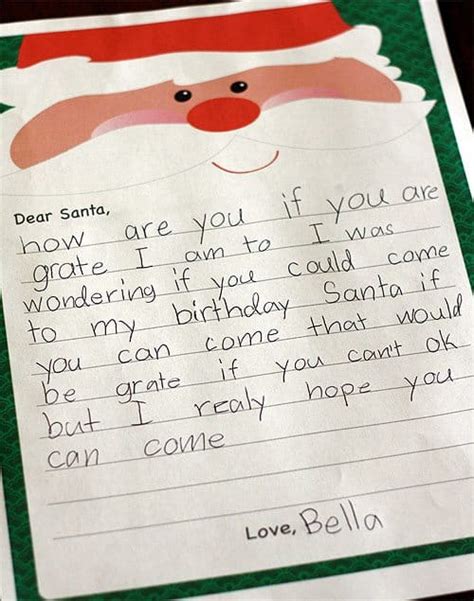 Dear Santa,
how are you if you are
grate I am to I was
wondering if you could come
to my birthday Santa if
you can come that would
be grate if you can't ok
but I realy hope you
can come
Love, Bella